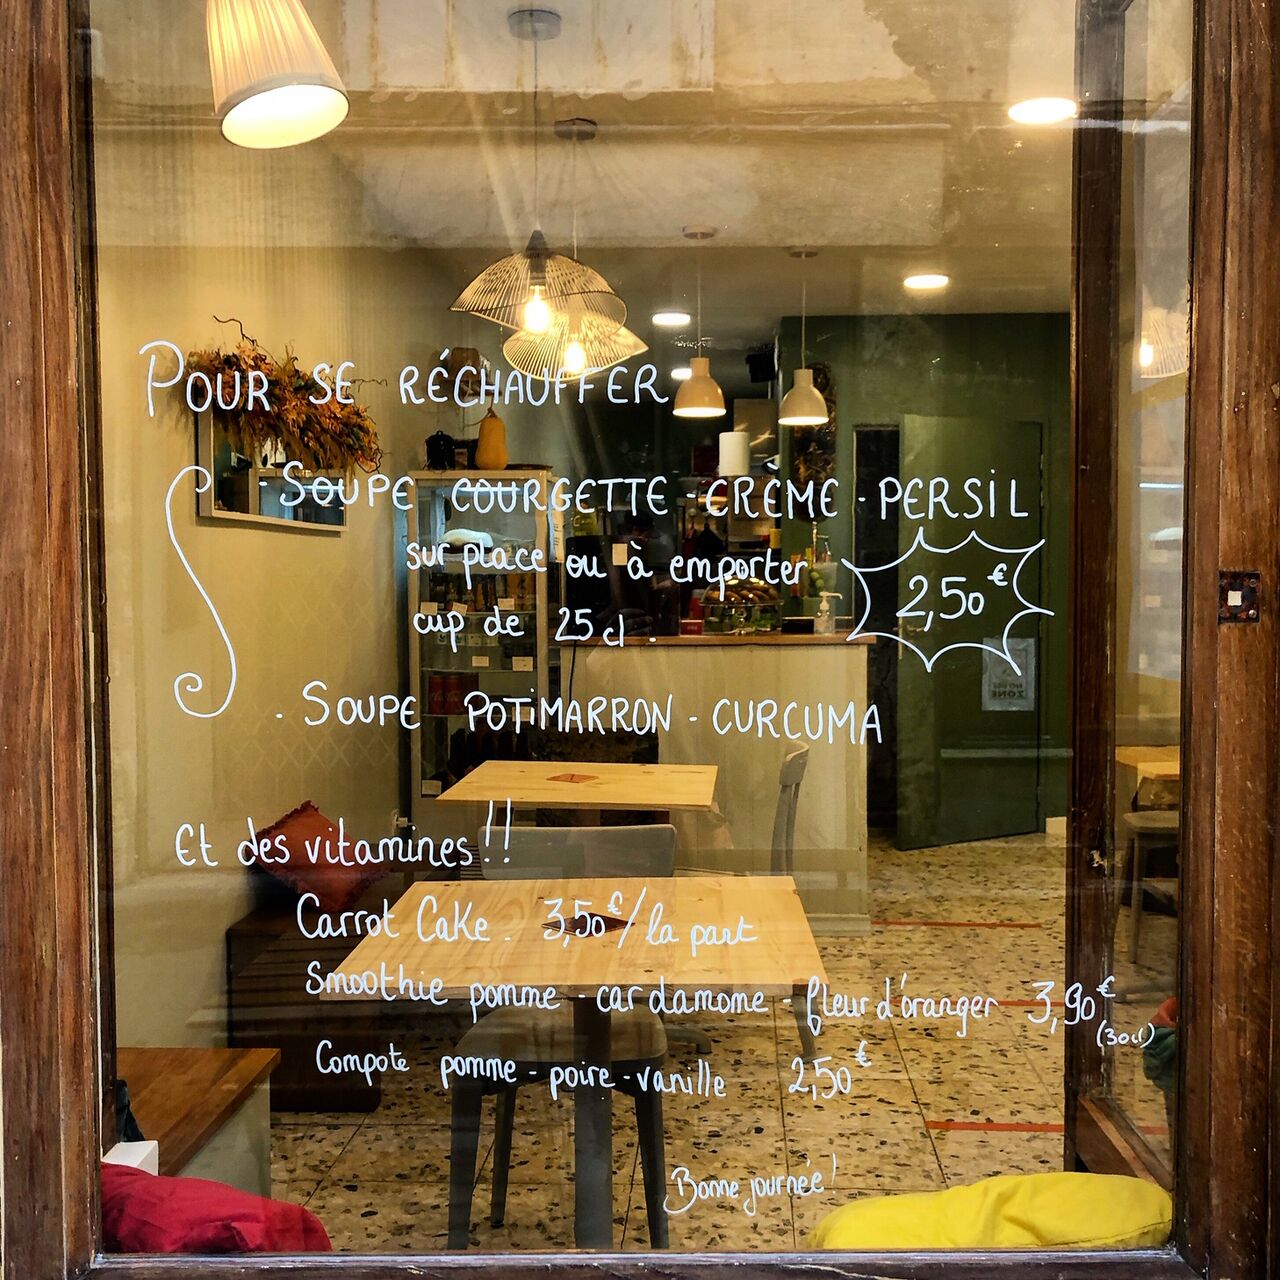 POUR SE RÉCHAUFFER
- SOUPE COURGETTE - CRÈME - PERSIL
sur place ou à emporter
2,50€
cup de 25 cl.
. SOUPE POTIMARRON - CURCUMA
Et des vitamines!!
Carrot Cake. 3,50€/la part
Smoothie pomme - cardamome - fleur d'oranger 3,90€
(30cl)
Compote pomme - poire - vanille 2,50€
Bonne journée!
ZONE